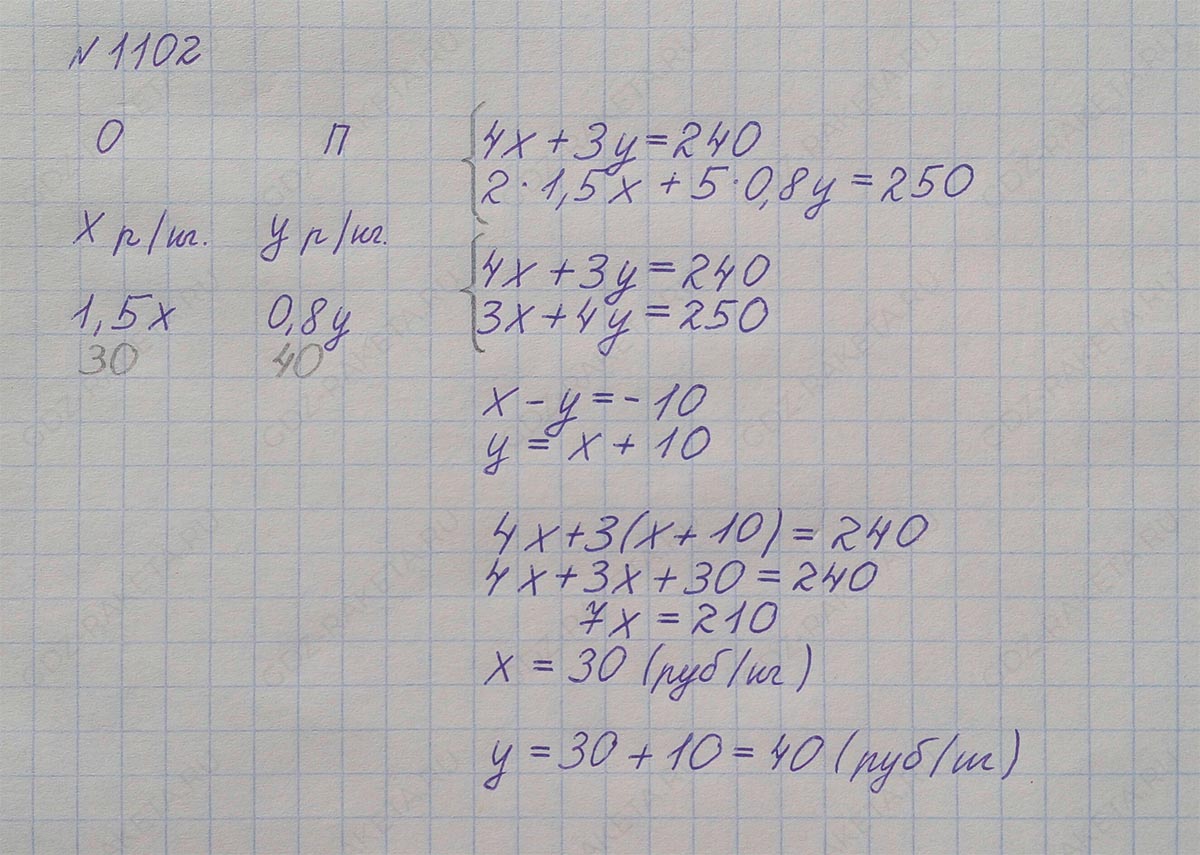 N 1102
О П
х р/кг. у р/кг.
1,5х 0,8у
30 40
4х + 3у = 240
2·1,5х + 5·0,8у = 250
4х + 3у = 240
3х + 4у = 250
х - у = - 10
у = х + 10
4х + 3(х + 10) = 240
4х + 3х + 30 = 240
7х = 210
х = 30 (руб/кг)
у = 30 + 10 = 40 (руб/кг)
GDZ-RAKETA.RU